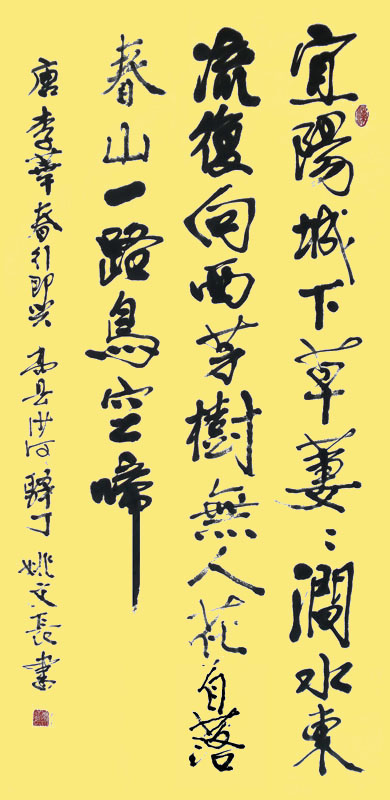 宜陽城下草萋〻澗水東
流復向西芳樹無人花自落
春山一路鳥空啼
唐李華春行即兴 嵩县洪河 驛丁 姚文長書